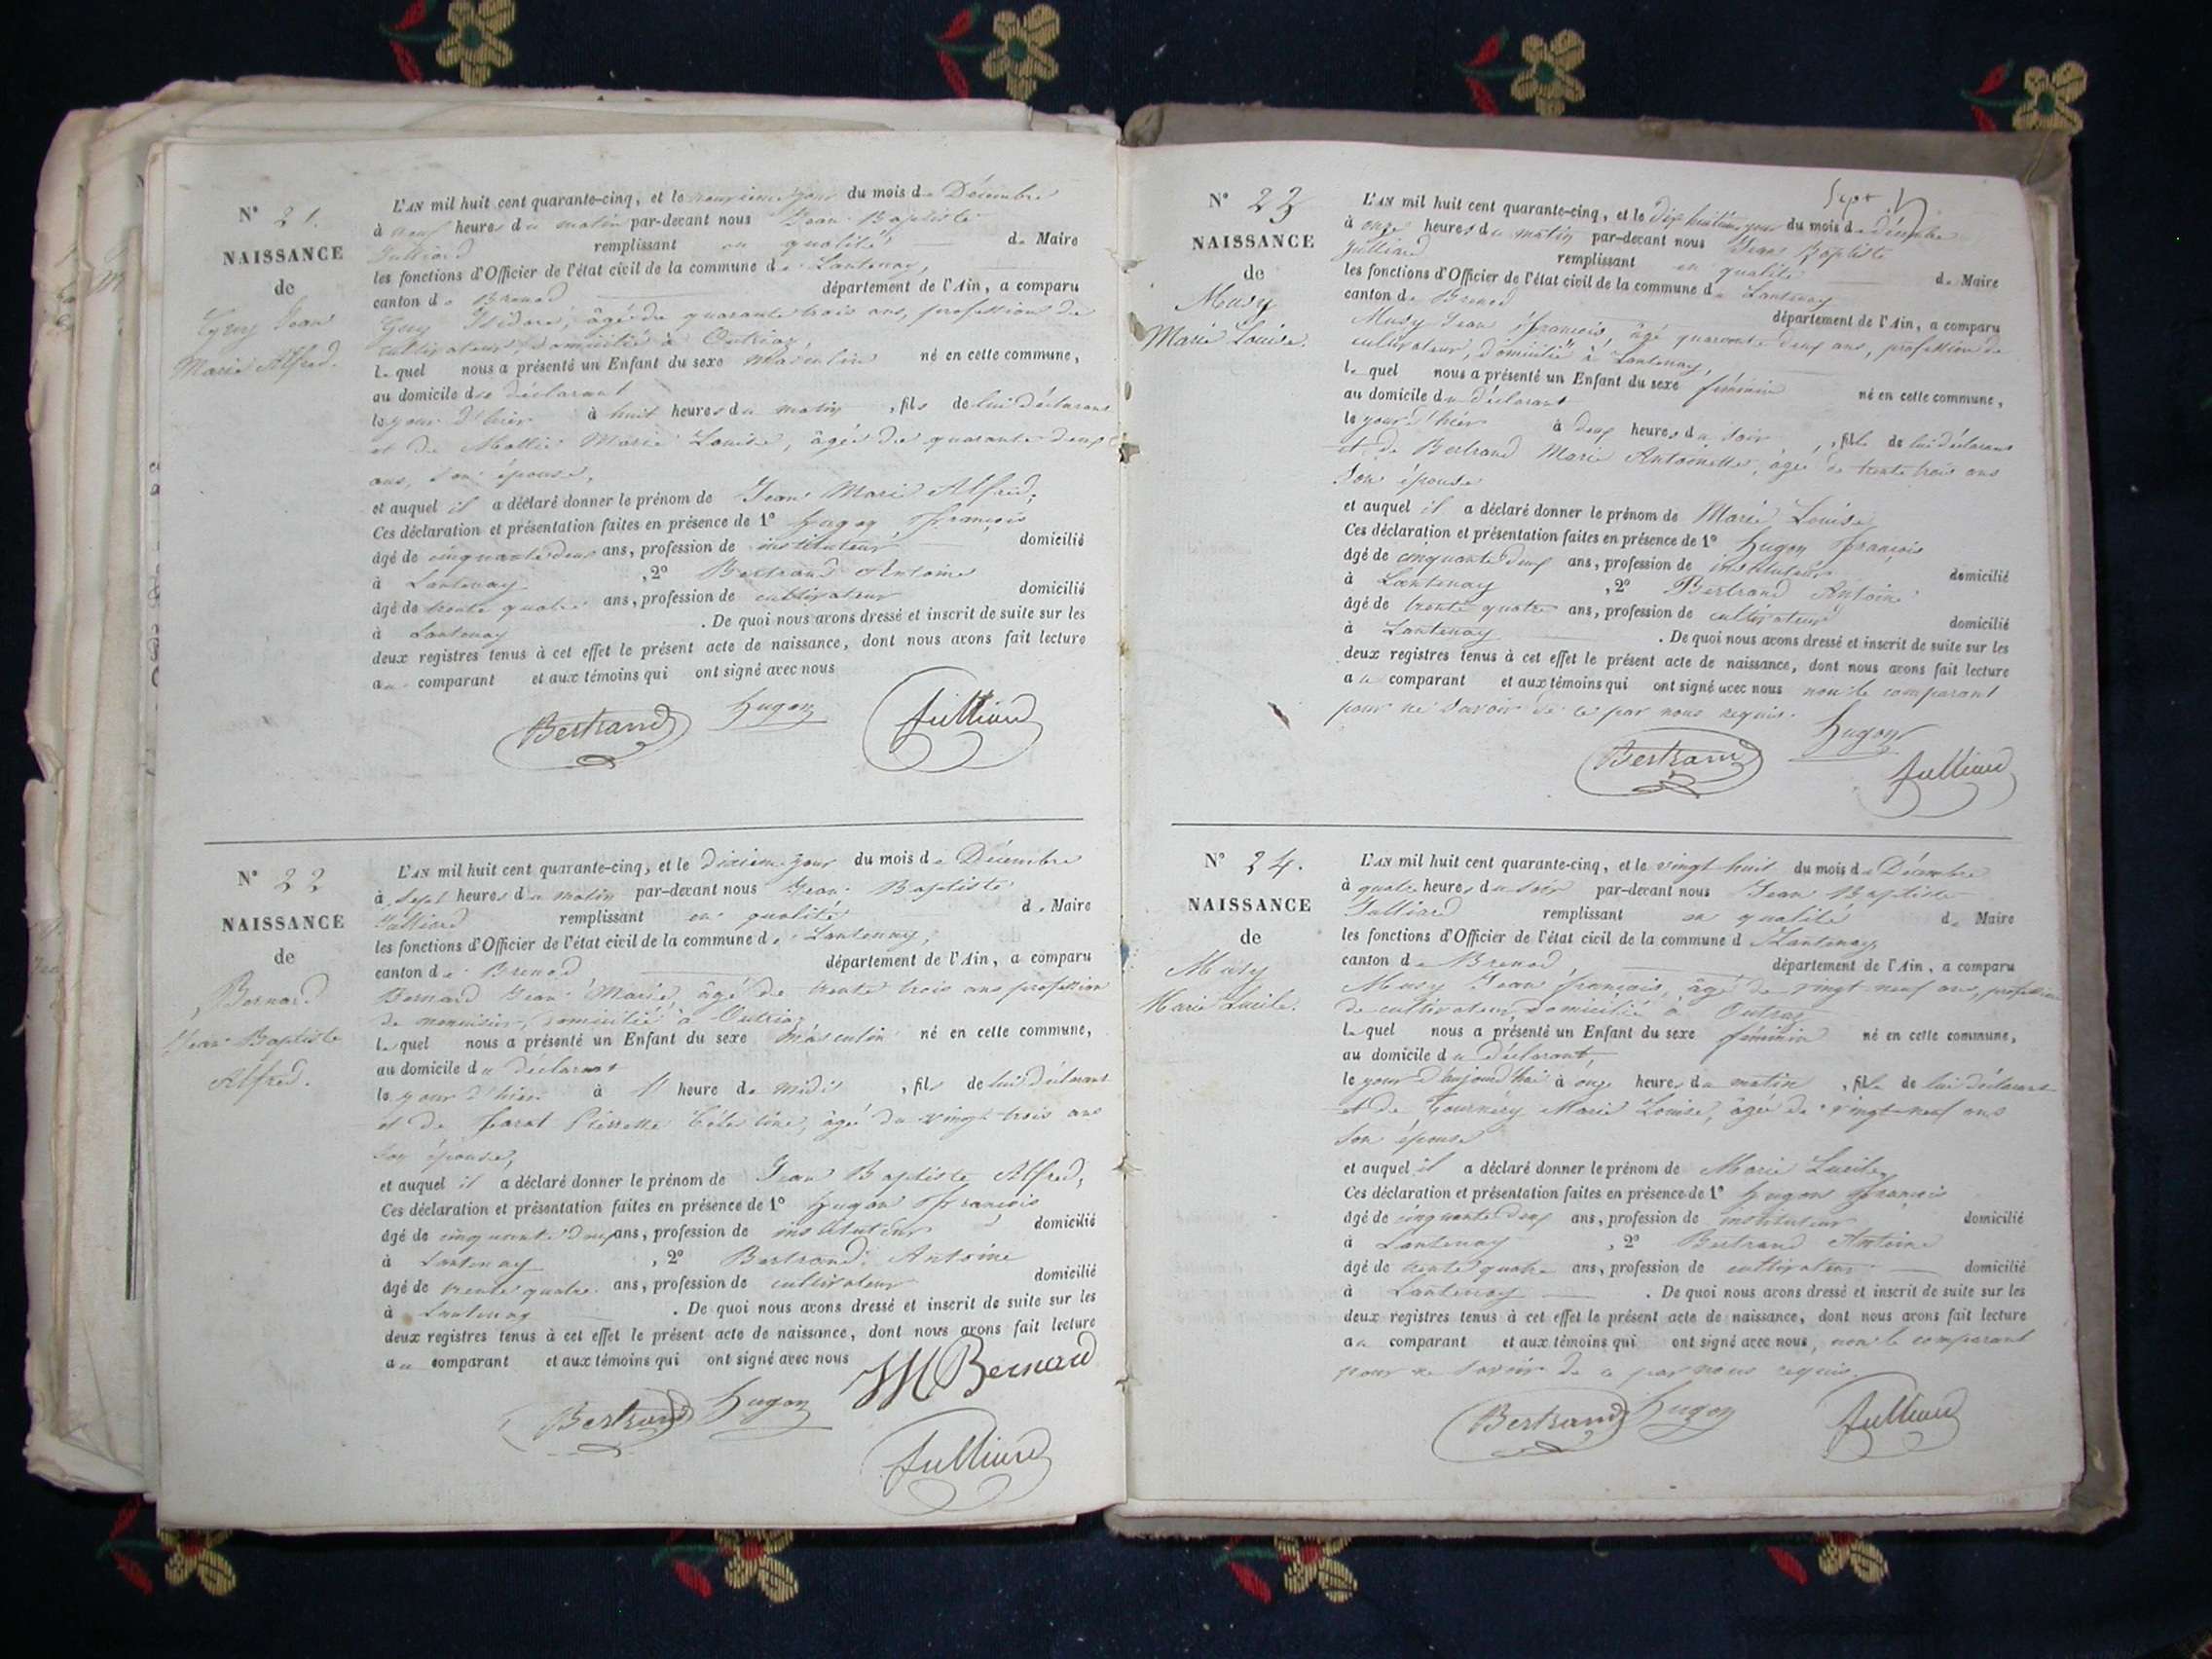 N° 21.
NAISSANCE
de
Jean
Marie Alfred.
L'AN mil huit cent quarante-cinq, et le neuvieme jour du mois de Décembre
à neuf heures du matin par-devant nous Jean Baptiste
Julliard remplissant en qualité de Maire
les fonctions d'Officier de l'état civil de la commune de Lantenay,
canton de Brenod département de l'Ain, a comparu
Guy Isidore, âgé de quarante trois ans, profession de
cultivateur, domicilié à Outriaz,
lequel nous a présenté un Enfant du sexe masculin né en cette commune,
au domicile du déclarant
le jour d'hier à huit heures du matin, fils de lui déclarant
et de Marie Louise, âgée de quarante deux
ans, son épouse,
et auquel il a déclaré donner le prénom de Jean Marie Alfred,
Ces déclaration et présentation faites en présence de 1° hugon François
âgé de cinquante deux ans, profession de instituteur domicilié
à Lantenay, 2° Bertrand Antoine
âgé de trente quatre ans, profession de cultivateur domicilié
à Lantenay. De quoi nous avons dressé et inscrit de suite sur les
deux registres tenus à cet effet le présent acte de naissance, dont nous avons fait lecture
au comparant et aux témoins qui ont signé avec nous
Bertrand hugon Julliard
N° 22
NAISSANCE
de
Bernard
Jean Baptiste
Alfred.
L'AN mil huit cent quarante-cinq, et le dixieme jour du mois de Décembre
à sept heures du matin par-devant nous Jean Baptiste
Julliard remplissant en qualité de Maire
les fonctions d'Officier de l'état civil de la commune de Lantenay,
canton de Brenod département de l'Ain, a comparu
Bernard Jean Marie, âgé de trente trois ans profession
de menuisier, domicilié à Outriaz
lequel nous a présenté un Enfant du sexe masculin né en cette commune,
au domicile du déclarant
le jour d'hier à heure de midi, fils de lui déclarant
et de Pierrette Célestine, âgé de vingt trois ans
son épouse,
et auquel il a déclaré donner le prénom de Jean Baptiste Alfred,
Ces déclaration et présentation faites en présence de 1° hugon François
âgé de cinquante deux ans, profession de instituteur domicilié
à Lantenay, 2° Bertrand Antoine
âgé de trente quatre ans, profession de cultivateur domicilié
à Lantenay. De quoi nous avons dressé et inscrit de suite sur les
deux registres tenus à cet effet le présent acte de naissance, dont nous avons fait lecture
au comparant et aux témoins qui ont signé avec nous
Bernard
Bertrand hugon
Julliard
N° 23
NAISSANCE
de
Musy
Marie Louise.
sept
L'AN mil huit cent quarante-cinq, et le dix huitième jour du mois de décembre
à onze heures du matin par-devant nous Jean Baptiste
Julliard remplissant en qualité de Maire
les fonctions d'Officier de l'état civil de la commune de Lantenay
canton de Brenod département de l'Ain, a comparu
Musy Jean François, âgé quarante deux ans, profession de
cultivateur, domicilié à Lantenay,
lequel nous a présenté un Enfant du sexe féminin né en cette commune,
au domicile du déclarant
le jour d'hier à deux heures du soir, fille de lui déclarant
et de Bertrand Marie Antoinette, âgé de trente trois ans
son épouse
et auquel il a déclaré donner le prénom de Marie Louise
Ces déclaration et présentation faites en présence de 1° hugon François
âgé de cinquante deux ans, profession de instituteur domicilié
à Lantenay, 2° Bertrand Antoine
âgé de trente quatre ans, profession de cultivateur domicilié
à Lantenay. De quoi nous avons dressé et inscrit de suite sur les
deux registres tenus à cet effet le présent acte de naissance, dont nous avons fait lecture
au comparant et aux témoins qui ont signé avec nous non le comparant
pour ne savoir de ce par nous requis.
Bertrand hugon Julliard
N° 24.
NAISSANCE
de
Musy
Marie Lucile.
L'AN mil huit cent quarante-cinq, et le vingt huit du mois de Décembre
à quatre heures du soir par-devant nous Jean Baptiste
Julliard remplissant en qualité de Maire
les fonctions d'Officier de l'état civil de la commune d Lantenay
canton de Brenod département de l'Ain, a comparu
Musy Jean François, âgé de vingt-neuf ans, profession
de cultivateur domicilié à Outriaz
lequel nous a présenté un Enfant du sexe féminin né en cette commune,
au domicile du déclarant,
le jour d'aujourd'hui à onze heures du matin, fille de lui déclarant
et de Tournéry Marie Louise, âgée de vingt-neuf ans
son épouse
et auquel il a déclaré donner le prénom de Marie Lucile,
Ces déclaration et présentation faites en présence de 1° hugon François
âgé de cinquante deux ans, profession de instituteur domicilié
à Lantenay, 2° Bertrand Antoine
âgé de trente quatre ans, profession de cultivateur domicilié
à Lantenay. De quoi nous avons dressé et inscrit de suite sur les
deux registres tenus à cet effet le présent acte de naissance, dont nous avons fait lecture
au comparant et aux témoins qui ont signé avec nous, non le comparant
pour ne savoir de ce par nous requis.
Bertrand hugon Julliard